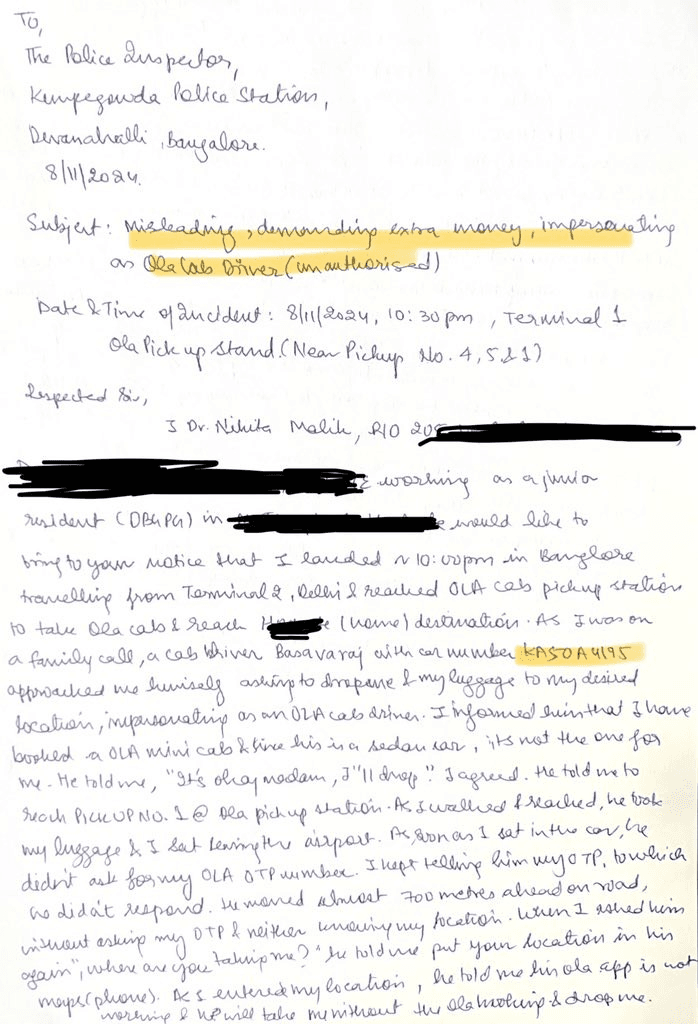 To,
The Police Inspector,
Kempegowda Police Station,
Devanahalli, Bangalore.
8/11/2024.
Subject: Misleading, demanding extra money, impersonating
as Ola Cab Driver (unauthorised)
Date & Time of Incident: 8/11/2024, 10:30pm, Terminal 1
Ola Pick up Stand (Near Pickup No. 4, 5 & 1)
Respected Sir,
I Dr. Nikita Malik, R/O 20
working as a junior
resident (OBGPG) in would like to
bring to your notice that I landed ~10:00pm in Banglore
travelling from Terminal 2, Delhi & reached OLA cab pickup station
to take Ola cab & reach (home) destination. As I was on
a family call, a cab driver Basavaraj with car number KA50A4195
approached me himself asking to drop me & my luggage to my desired
location, impersonating as an OLA cab driver. I informed him that I have
booked a OLA mini cab & since his is a sedan car, its not the one for
me. He told me, "It's okay madam, I'll drop". I agreed. He told me to
reach PICKUP NO. 1 @ Ola pickup station. As I walked & reached, he took
my luggage & I sat leaving the airport. As, soon as I sat in the car, he
didn't ask for my OLA OTP number. I kept telling him my OTP, to which
he didn't respond. He moved almost 700 metres ahead on road,
without asking my OTP & neither knowing my location. When I asked him
again", where are you taking me?" he told me put your location in his
maps (phone). As I entered my location, he told me his ola app is not
working & he will take me without the Ola booking & drop me.